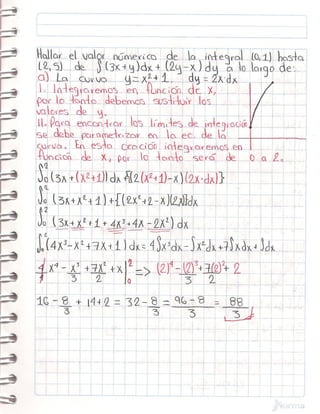 Hallar el valor númerico de la integral (0,1) hasta
(2,5) de ∫(3x+y)dx + (2y-x)dy a lo largo de:
a) La curva y=x²+1. dy=2x·dx
I. Integraremos en función de x,
por lo tanto debemos sustituir los
valores de y.
II. Para encontrar los límites de integración
se debe parametrizar en la ec. de la
curva. En esta ocación integraremos en
función de x, por lo tanto será de 0 a 2.
∫₀² (3x+(x²+1))dx +{[2(x²+1)-x)(2x·dx]}
∫₀² (3x+x²+1)+{[(2x²+2-x)(2x)]dx
∫₀² (3x+x²+1+4x³+4x-2x²)dx
∫₀² (4x³-x²+7x+1)dx = 4∫x³dx-∫x²dx+7∫xdx+∫dx
4/4 x⁴ - x³/3 + 7x²/2 + x |₀² => (2)⁴ - (2)³/3 + 7(2)²/2 + 2
16 - 8/3 + 14+2 = 32 - 8/3 = 96-8/3 = 88/3
Norma